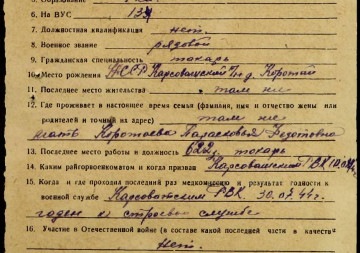 6. На ВУС 133
7. Должностная квалификация нет.
8. Военное звание рядовой
9. Гражданская специальность токарь
10. Место рождения УАССР Карсовайский р-н д. Коротай
11. Последнее место жительства там же
12. Где проживает в настоящее время семья (фамилия, имя и отчество жены или
родителей и точный их адрес) там же
мать Коротаева Парасковья Федотовна
13. Последнее место работы и должность 622 токарь
14. Каким райгорвоенкоматом и когда призван Карсовайским РВК
15. Когда и где проходил последний раз медкомиссию и результат годности к
военной службе Карсовайским РВК. 30.07.44г.
годен к строевой службе
16. Участие в Отечественной войне (в составе какой последней части и в качестве
Нет.